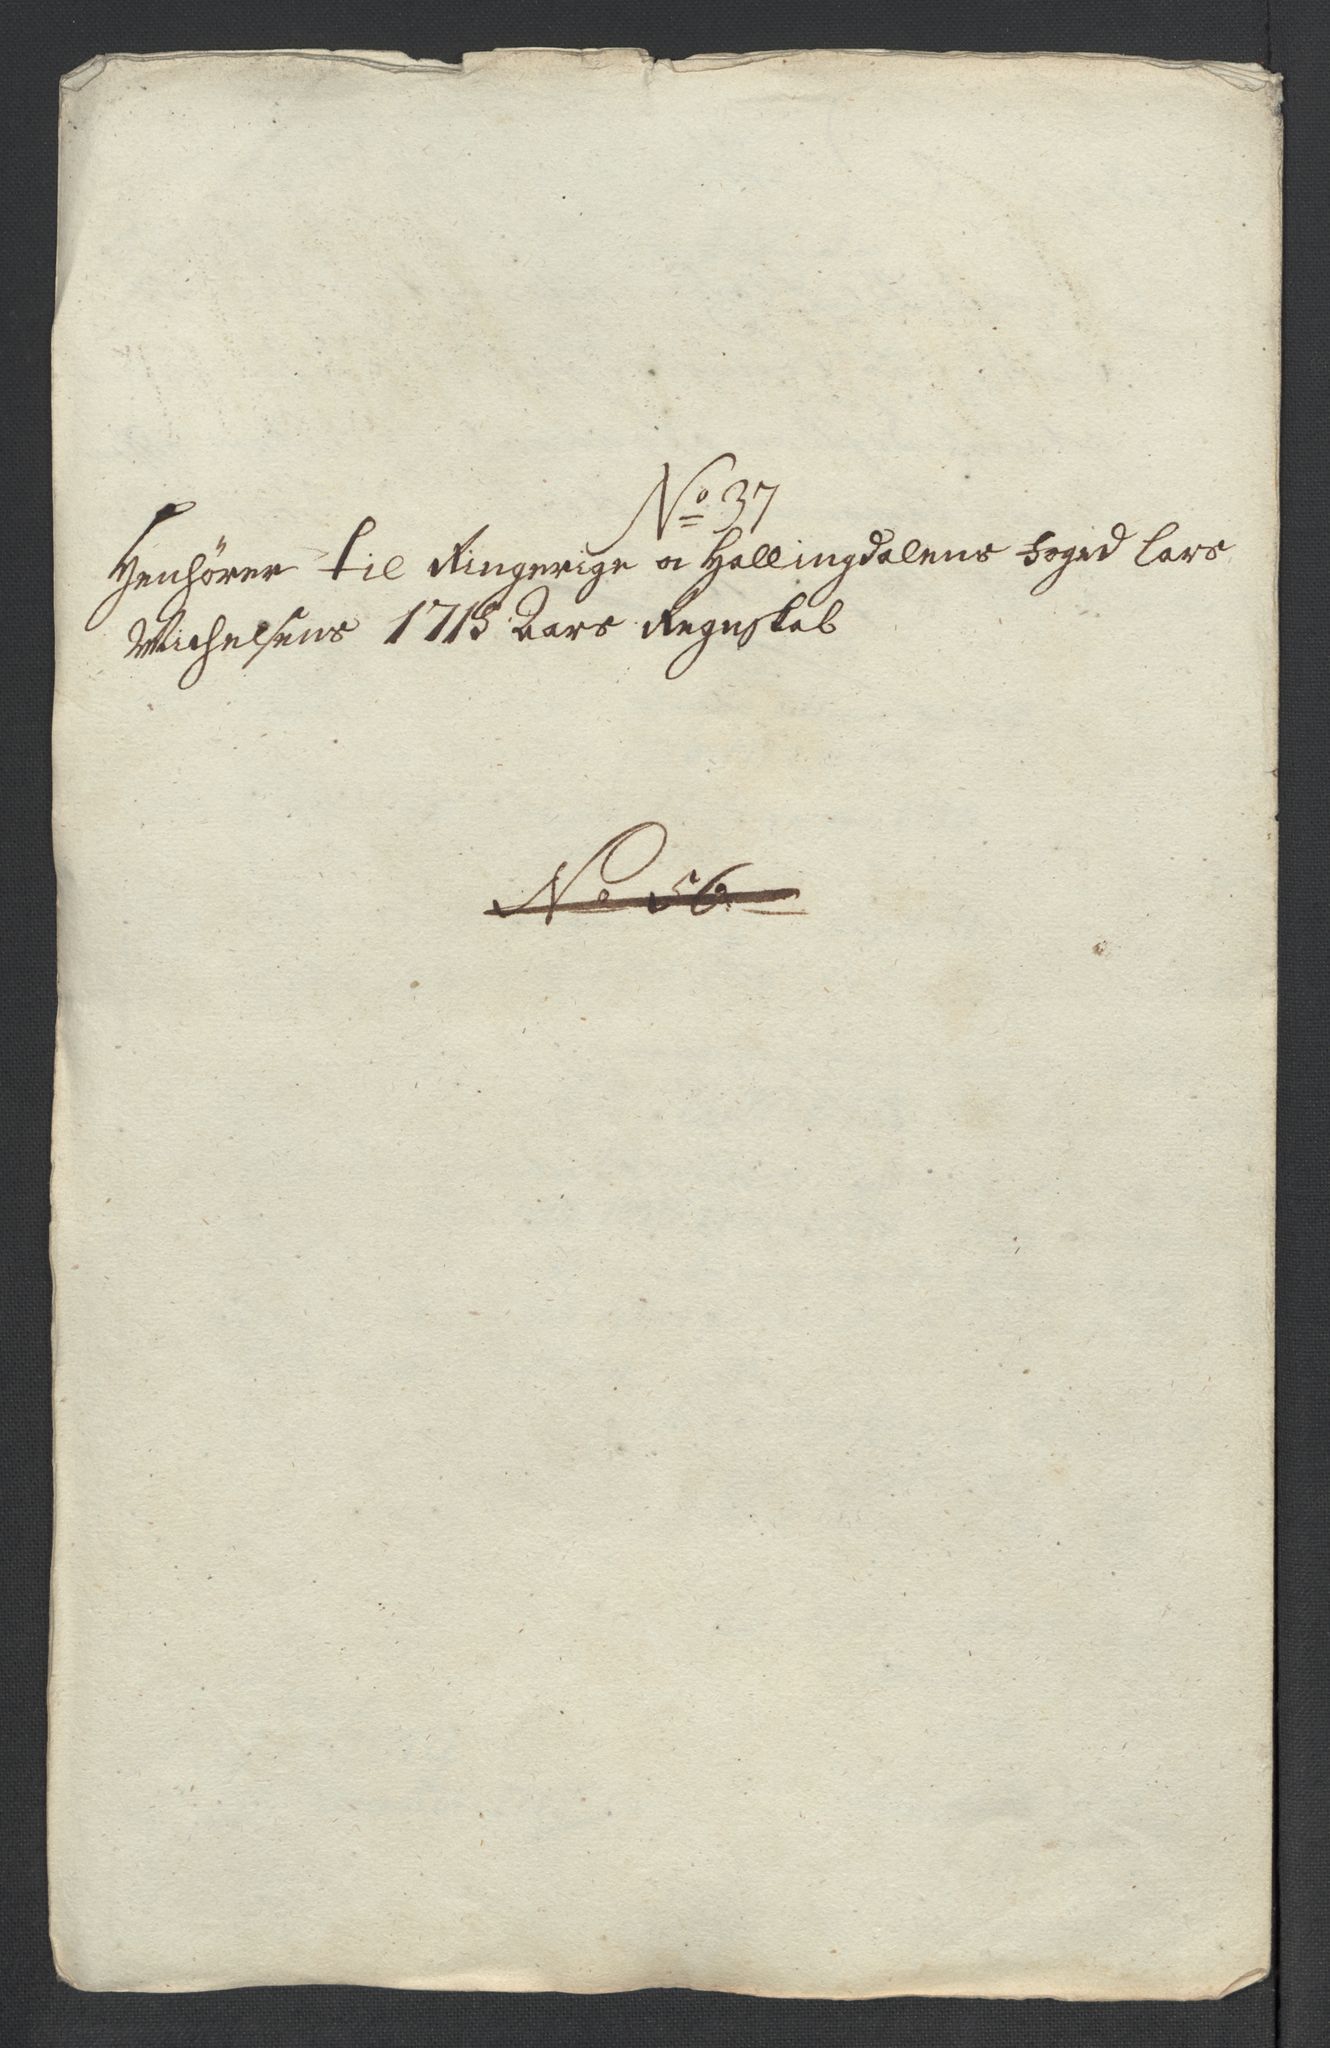 No 37
Henhører til Ringerige o Hallingdalens foged Lars
Michelsens 1715 Aars Regnskab
No 56